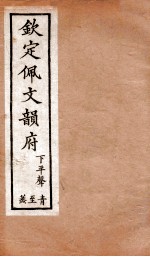 欽定佩文韻府
下平聲
青至蒸